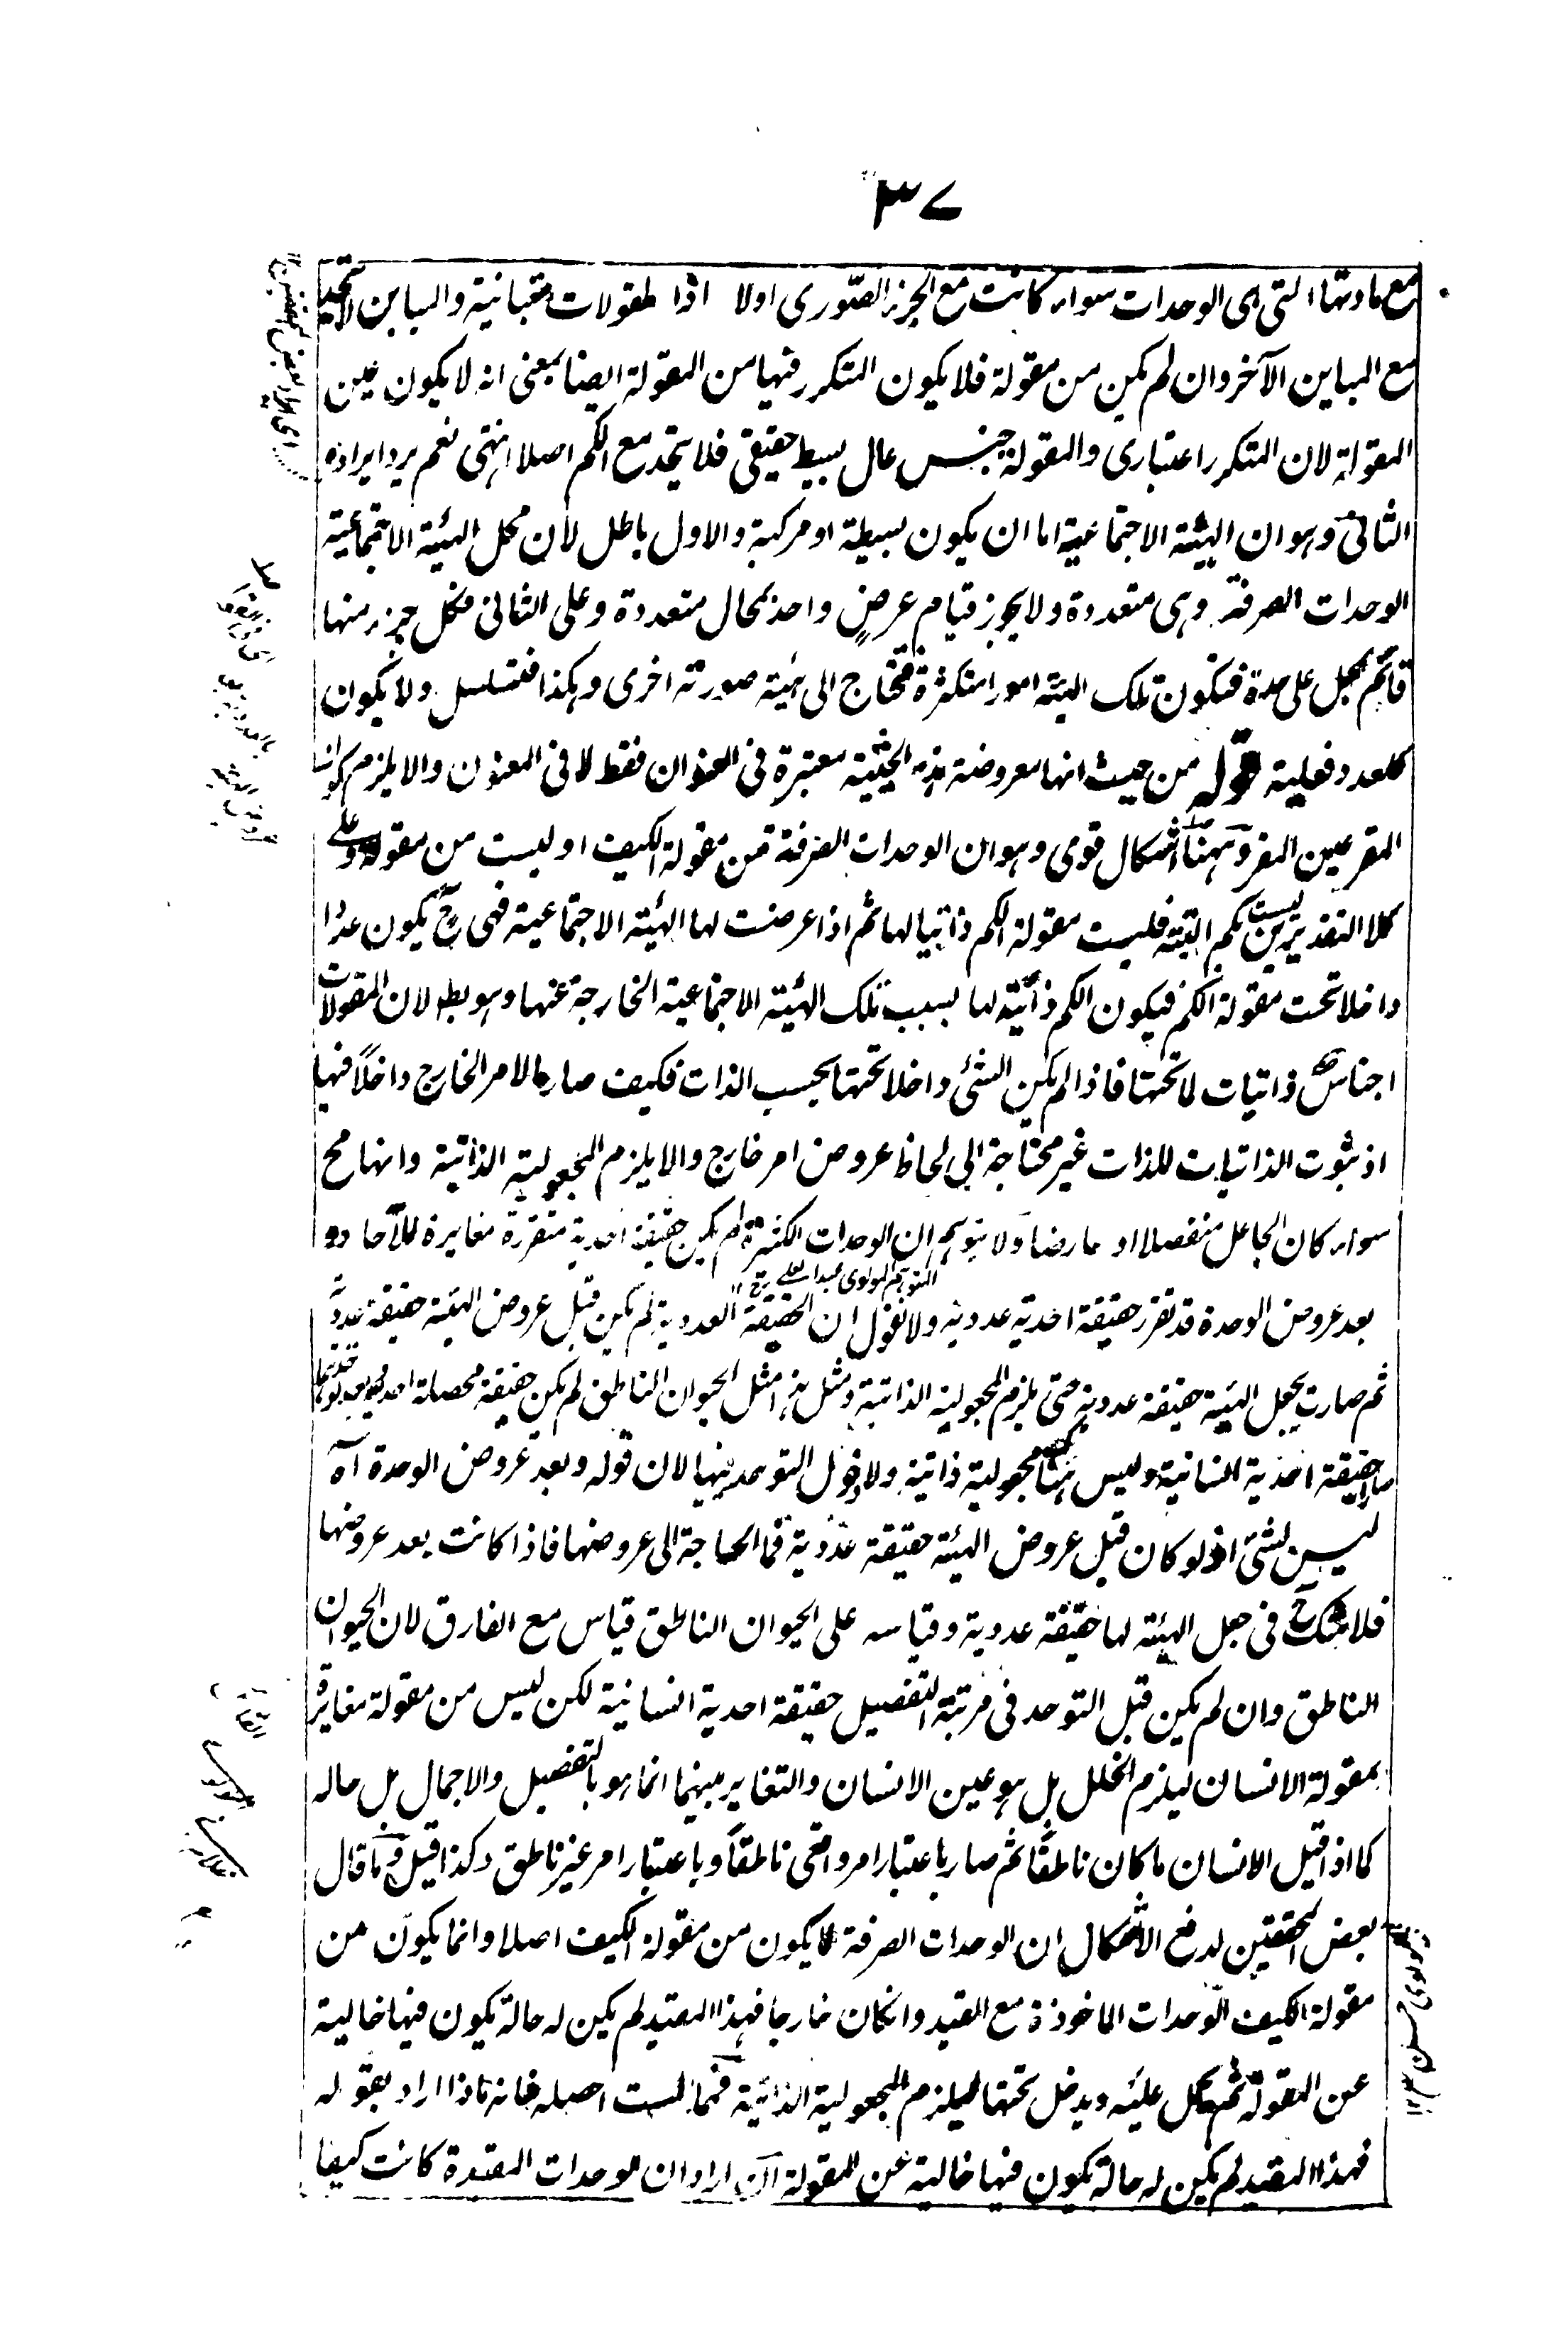 ٣٧
مع مادتها التى هى الوحدات سواء كانت مع الجزء الصورى اولا اذا المقولات متبائنية والمباين لا يتحد
مع المباين الآخر وان لم يكن من مقولة فلا يكون المتكرر فيها من المقولة ايضا بمعنى انه لا يكون عين
المقولة لان المتكرر اعتبارى والمقولة جنس عال بسيط حقيقى فلا يتحد مع الكم اصلا انتهى نعم يرد ايراده
الثانى وهو ان الهيئة الاجتماعية اما ان يكون بسيطة او مركبة والاول باطل لان محل الهيئة الاجتماعية
الوحدات الصرفة وهى متعددة ولا يجوز قيام عرض واحد بمحال متعددة وعلى الثانى فكل جزء منها
قائم بمحل على حدة فتكون تلك الهيئة امورا متكثرة فتحتاج الى هيئة صورته اخرى وهكذا فتتسلسل ولا يكون
للعدد فعلية قوله من حيث انها معروضة هذه الحيثية معتبرة فى العنوان فقط لا فى المعنون والا يلزم
المفر عين المفر وههنا اشكال قوى وهو ان الوحدات الصرفة من مقولة الكيف او ليست من مقولة وعلى
كلا التقديرين ليست بكم البتة فليست مقولة الكم ذاتيا لها ثم اذا عرضت لها الهيئة الاجتماعية فهى ح يكون عددا
داخلا تحت مقولة الكم فيكون الكم ذاتية لها بسبب تلك الهيئة الاجتماعية الخارجة عنها وهو بط لان المقولات
اجناس ذاتيات لما تحتها فاذا لم يكن الشئ داخلا تحتها بحسب الذات فكيف صار بالامر الخارج داخلا فيها
اذ ثبوت الذاتيات للذات غير محتاجة الى لحاظ عروض امر خارج والا يلزم المجعولية الذاتية وانها مح
سواء كان الجاعل منفصلا او عارضا ولا يتوهم ان الوحدات الكثيرة لم يكن حقيقة احدية متقررة مغايرة للآحاد و
المتوهم المولوى عبد العلى رح ١٢
بعد عروض الوحدة قد تقرر حقيقة احدية عددية ولا نقول ان الحقيقة العددية لم يكن قبل عروض الهيئة حقيقة عددية
ثم صارت بجعل الهيئة حقيقة عددية حتى يلزم المجعولية الذاتية ومثل هذا مثل الحيوان الناطق لم يكن حقيقة محصلة احدية وبعد
صار حقيقة احدية انسانية وليس هناك مجعولية ذاتية ولا دخول التوحد فيها لان قوله وبعد عروض الوحدة آه
ليس بشئ اذ لو كان قبل عروض الهيئة حقيقة عددية فما الحاجة الى عروضها فاذا كانت بعد عروضها
فلا شك ح فى جعل الهيئة لها حقيقة عددية وقياسه على الحيوان الناطق قياس مع الفارق لان الحيوان
الناطق وان لم يكن قبل التوحد فى مرتبة التفصيل حقيقة احدية انسانية لكن ليس من مقولة مغايرة
بمقولة الانسان ليلزم الخلل بل هو عين الانسان والتغاير بينهما انما هو بالتفصيل والاجمال بل ماله
كما اذا قيل الانسان ما كان ناطقًا ثم صار باعتبار امر واقعى ناطقًا وباعتبار امر غير ناطق وكذا قيل وما قال
بعض المحققين لدفع الاشكال ان الوحدات الصرفة لا يكون من مقولة الكيف اصلا وانما يكون من
مقولة الكيف الوحدات الماخوذة مع القيد وانكان خارجا فهذا المقيد لم يكن له حالة يكون فيها خالية
عن المقولة ثم يحمل عليه ويدخل تحتها ليلزم المجعولية الذاتية فمما لست احصله فانه ماذا اراد بقوله
فهذا المقيد لم يكن له حالة يكون فيها خالية عن المقولة ان اراد ان الوحدات المقيدة كانت كيفا